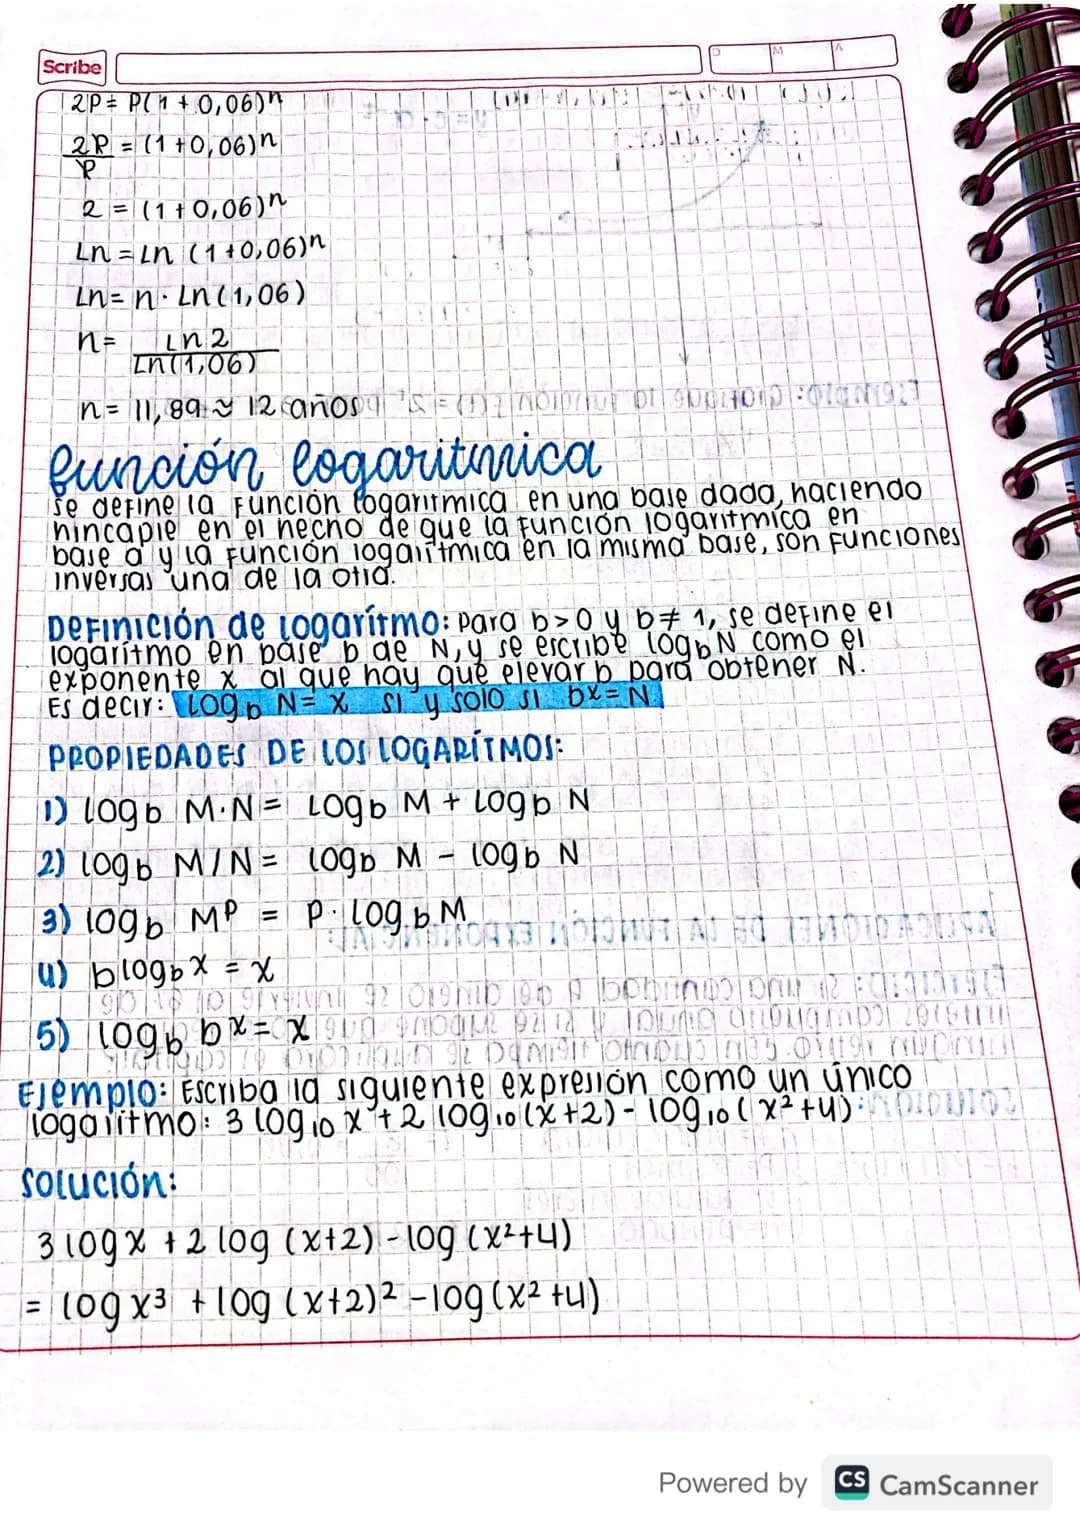 Scribe
D M A
2P = P(1 + 0,06)ⁿ
2P/P = (1 + 0,06)ⁿ
2 = (1 + 0,06)ⁿ
Ln = Ln (1 + 0,06)ⁿ
Ln = n · Ln (1,06)
n = Ln 2 / Ln (1,06)
n = 11,89 ≈ 12 años
función logaritmica
se define la función logaritmica en una base dada, haciendo
hincapie en el hecho de que la función logaritmica en
base a y la función logaritmica en la misma base, son funciones
inversas una de la otra.
Definición de logarítmo: para b > 0 y b ≠ 1, se define el
logarítmo en base b de N, y se escribe log_b N como el
exponente x al que hay que elevar b para obtener N.
Es decir: Log_b N = x si y solo si bx = N
PROPIEDADES DE LOS LOGARÍTMOS:
1) log_b M·N = Log_b M + Log_b N
2) log_b M/N = log_b M - log_b N
3) log_b Mᵖ = p · log_b M
4) b^(log_b x) = x
5) log_b bˣ = x
Ejemplo: Escriba la siguiente expresión como un único
logarítmo: 3 log₁₀ x + 2 log₁₀ (x+2) - log₁₀ (x²+4)
Solución:
3 log x + 2 log (x+2) - log (x²+4)
= log x³ + log (x+2)² - log (x²+4)
Powered by CS CamScanner